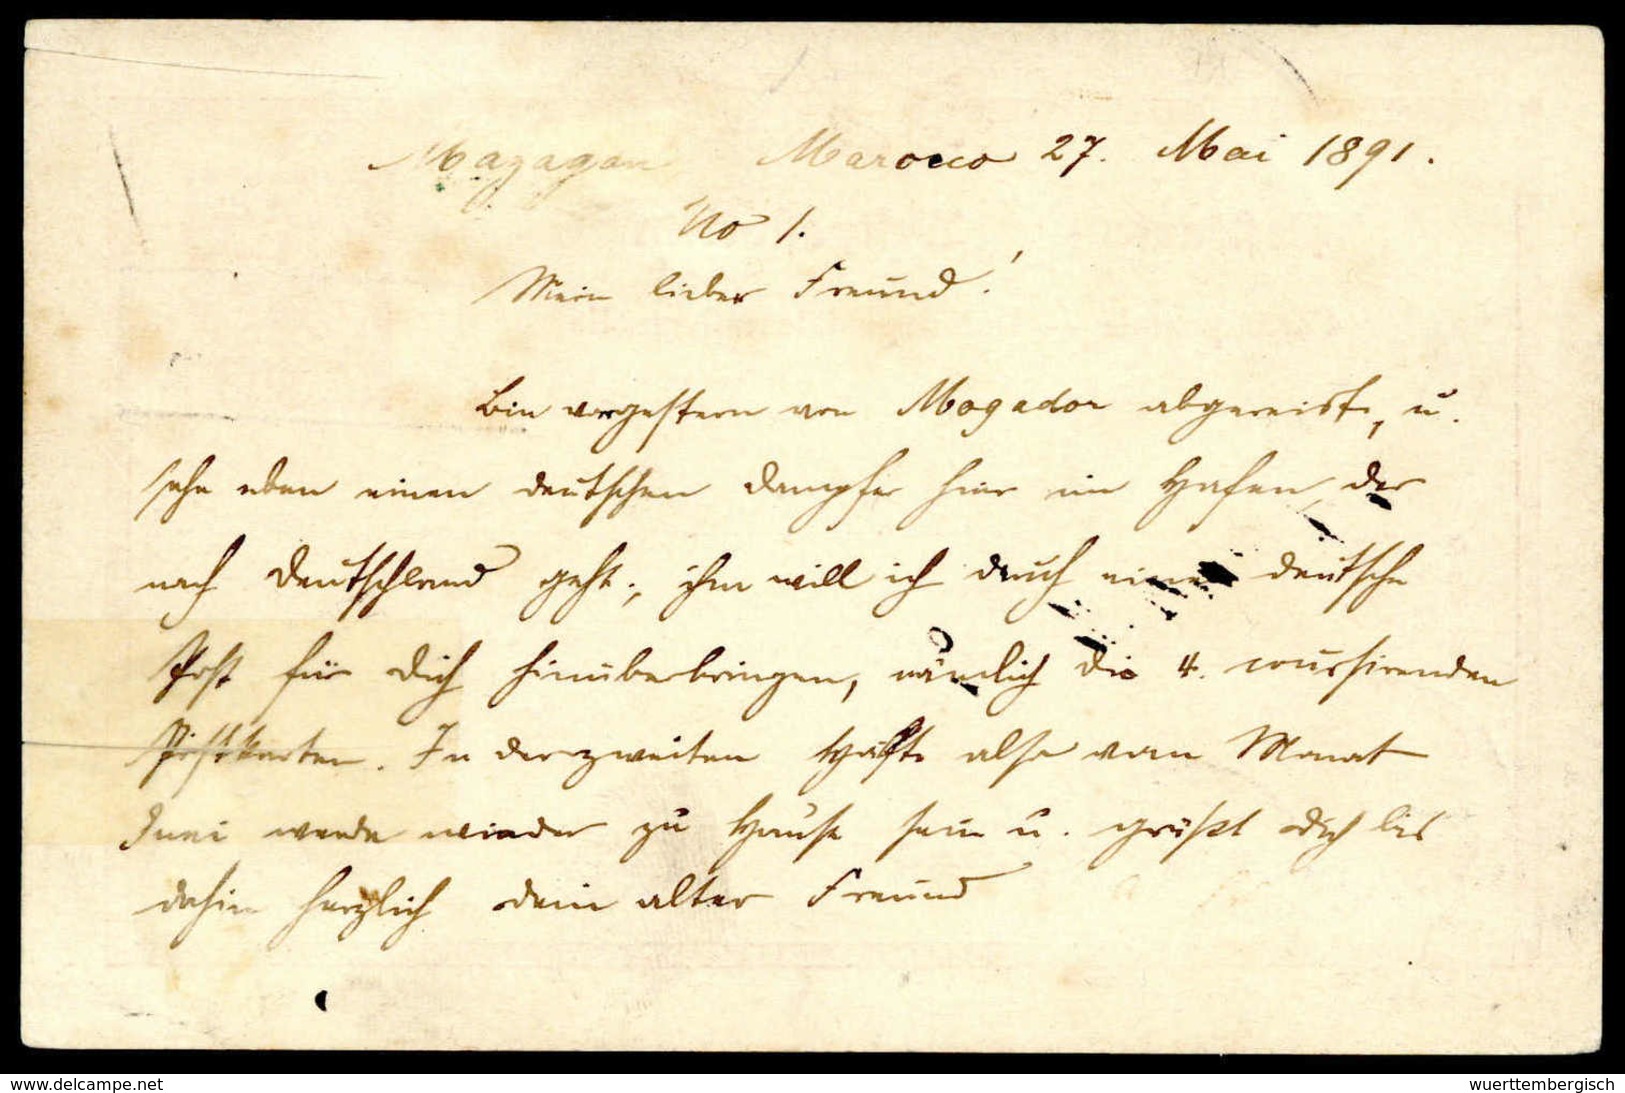 Mazagan Marocco 27. Mai 1891.
No 1.
Mein lieber Freund!
Bin vorgestern von Mogador abgereist, u.
sehe eben einen deutschen Dampfer hier im Hafen, der
nach Deutschland geht; ihm will ich durch eine deutsche
Post für Dich hinüberbringen, nämlich die 4.
Postkarten. In der zweiten Hälfte also vom Monat
Juni werde wieder zu Hause sein u. grüßt Dich bis
dahin herzlich Dein alter Freund
www.delcampe.net
wuerttembergisch